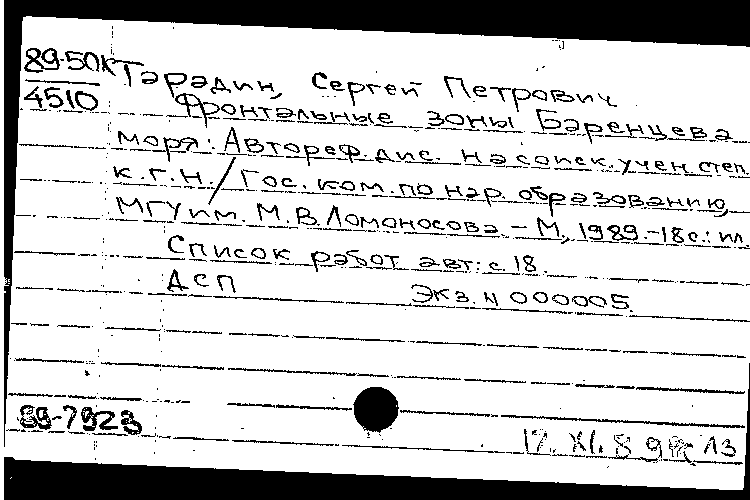 89-50К Тарадин, Сергей Петрович
4510 Фронтальные зоны Баренцева
моря: Автореф. дис. на соиск. учен. степ.
к.г.н. / Гос. ком. по нар. образованию,
МГУ им. М.В. Ломоносова. – М., 1989. – 18 с.: ил.
Список работ авт.: с. 18.
ДСП Экз. N 000005.
89-7923
17. XI. 89